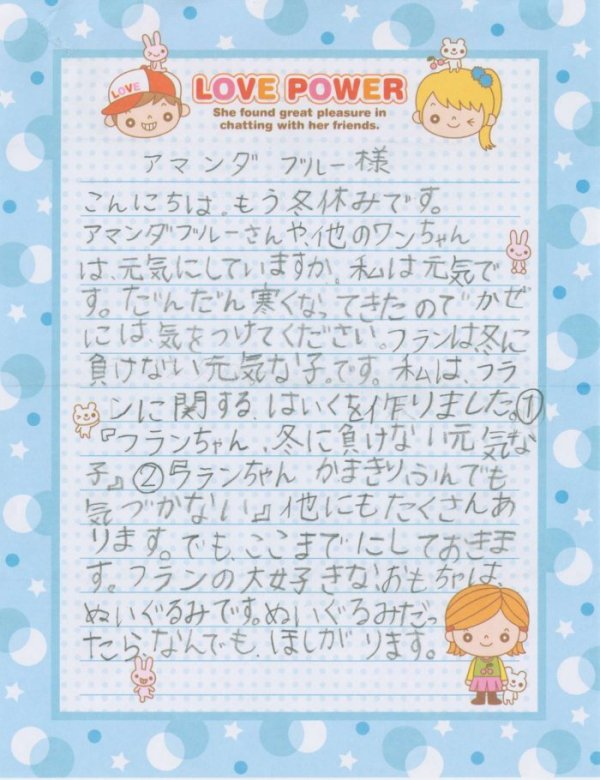 LOVE
LOVE POWER
She found great pleasure in
chatting with her friends.
アマンダ ブルー様
こんにちは。もう冬休みです。
アマンダブルーさんや、他のワンちゃん
は、元気にしていますか。私は元気で
す。だんだん寒くなってきたので かぜ
には、気をつけてください。フランは冬に
負けない元気な子。です。私は、フラ
ンに関する、はいくを作りました。①
『フランちゃん、冬に負けない元気な
子』②『フランちゃん かまきりふんでも
気づかない』他にもたくさんあ
ります。でも、ここまでにしておきま
す。フランの大好きなおもちゃは、
ぬいぐるみです。ぬいぐるみだっ
たら、なんでも、ほしがります。